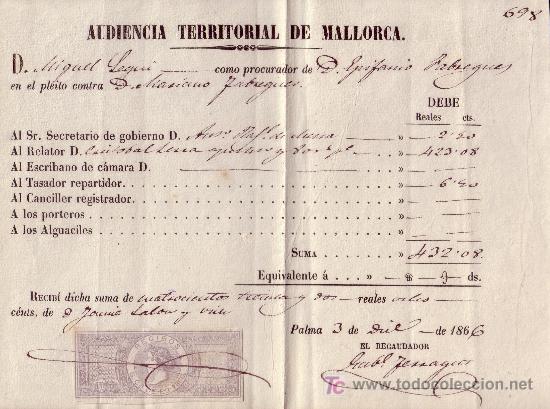 698
AUDIENCIA TERRITORIAL DE MALLORCA.
D. Miguel como procurador de D. Epifanio Fabregues
en el pléito contra D. Mariano Fabregues
DEBE
Reales cts.
Al Sr. Secretario de gobierno D. " 2·20
Al Relator D. Cristobal Serra " 423·08
Al Escribano de cámara D. "
Al Tasador repartidor. " 6·80
Al Canciller registrador. "
A los porteros "
A los Alguaciles "
SUMA " 432·08
Equivalente á " ds.
RECIBÍ dicha suma de cuatrocientos treinta y dos reales ocho
cénts. de D. Jaime Salom y
Palma 3 de Dic.e de 1866
EL RECAUDADOR
RECIBOS
www.todocoleccion.net